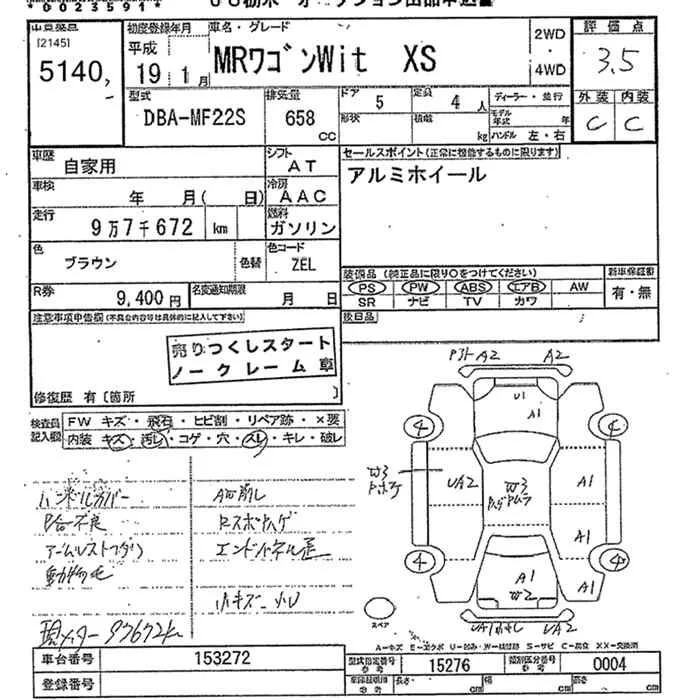 *0023591*
[2145]
5140,
初度登録年月
平成
19年1月
車名・グレード
MRワゴンWit XS
2WD
・
4WD
評価点
3.5
型式
DBA-MF22S
排気量
658
CC
ドア
5
定員
4人
形状
積載
kg
ディーラー・並行
モデル年式 年
ハンドル 左・右
外装 内装
C C
車歴
自家用
シフト
AT
セールスポイント(正常に機能するものに限ります)
アルミホイール
車検
年 月( 日)
冷房
AAC
走行
9万7千672 km
燃料
ガソリン
色
ブラウン
色替
色コード
ZEL
装備品(純正品に限り○をつけてください)
PS PW ABS エアB AW
SR ナビ TV カワ
新車保証書
有・無
R券
9,400円
名変通知期限
月 日
後日品
注意事項申告欄(不具合内容等は具体的に記入して下さい)
売りつくしスタート
ノークレーム 車
修復歴 有〔箇所 〕
検査員記入欄
FW キズ・飛石・ヒビ割・リペア跡・×要
内装 キズ・汚レ・コゲ・穴・スレ・キレ・破レ
ハンドルカバー
動物毛
現メーター 97672k
小キズ 小U
A2 A2
U1
A1
4 4
W3
UA2
W3
A1
A1
4 4
A1
W2
A1
UA2
スペア
A-キズ E-エクボ U-凹み W-補修跡 S-サビ C-腐食 XX-交換済
車台番号
153272
型式指定番号
15276
類別区分番号
0004
登録番号
長さ cm
幅 cm
高さ cm